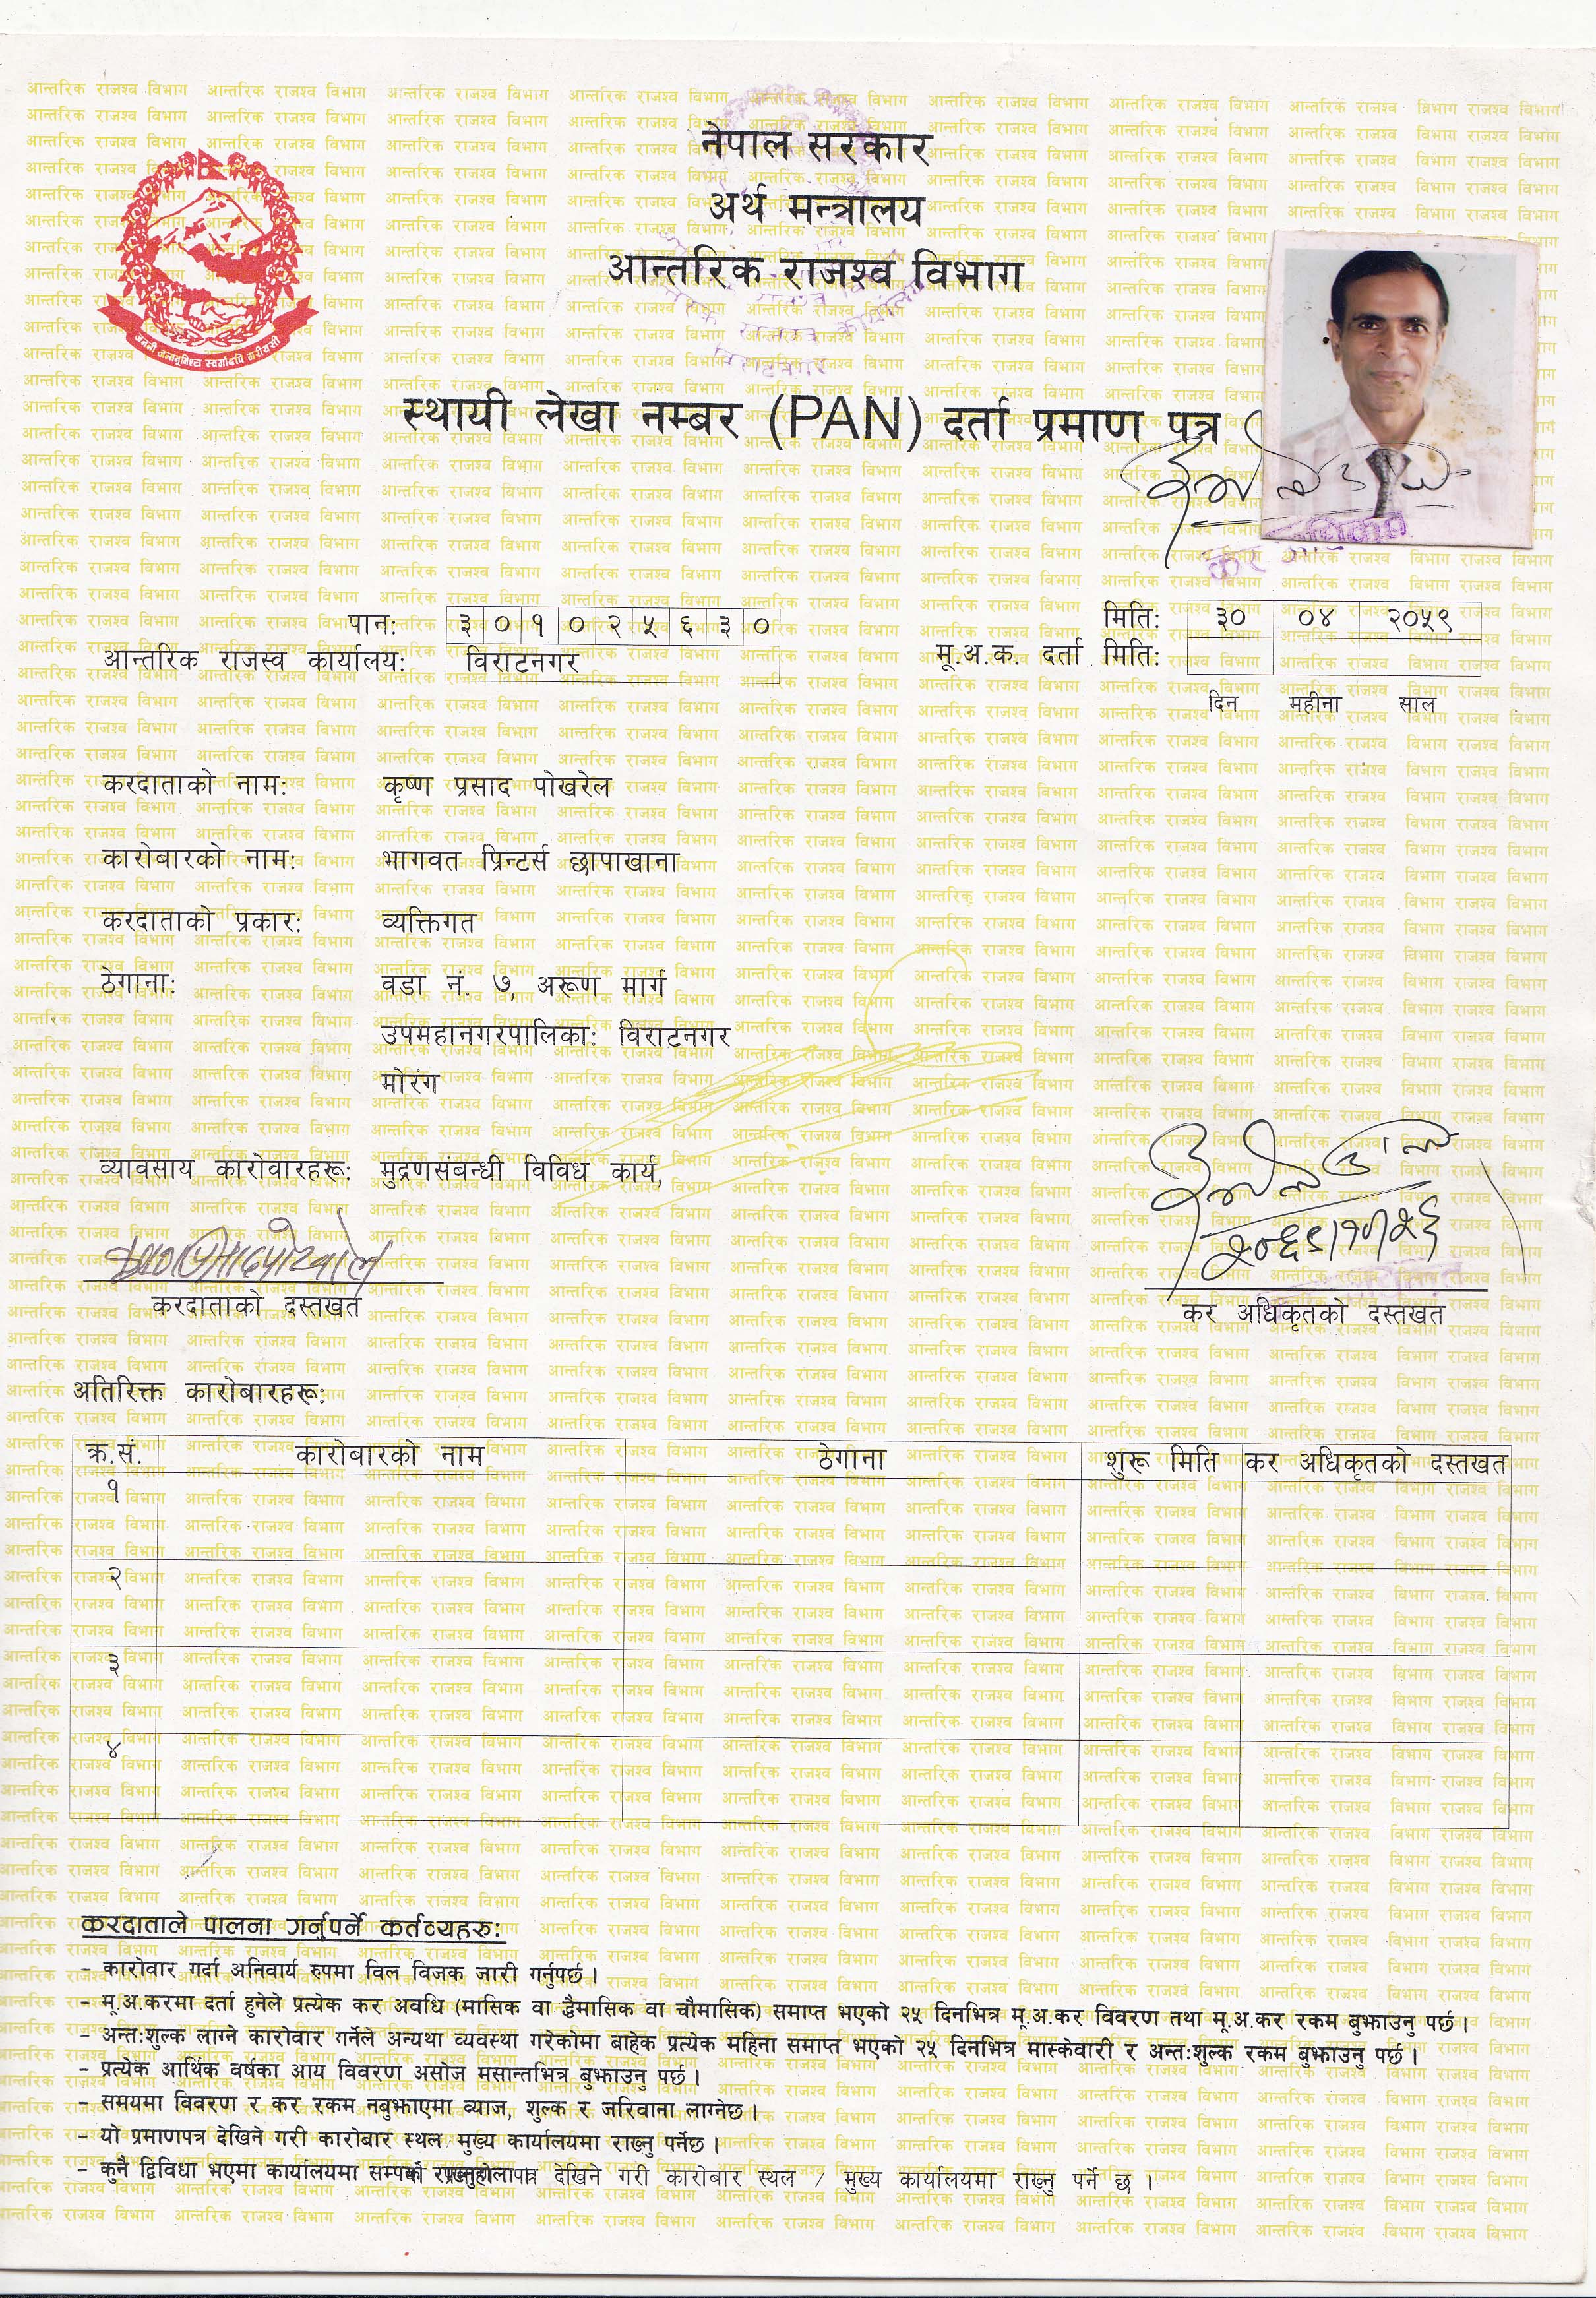 नेपाल सरकार
अर्थ मन्त्रालय
आन्तरिक राजश्व विभाग
जननी जन्मभूमिश्च स्वर्गादपि गरीयसी
स्थायी लेखा नम्बर (PAN) दर्ता प्रमाण पत्र
पान: ३ ० १ ० २ ५ ६ ३ ० मिति: ३० ०४ २०५९
आन्तरिक राजस्व कार्यालय: विराटनगर मू.अ.क. दर्ता मिति:
दिन महीना साल
करदाताको नाम: कृष्ण प्रसाद पोखरेल
कारोबारको नाम: भागवत प्रिन्टर्स छापाखाना
करदाताको प्रकार: व्यक्तिगत
ठेगाना: वडा नं. ७, अरूण मार्ग
उपमहानगरपालिका: विराटनगर
मोरंग
व्यावसाय कारोवारहरू: मुद्रणसंबन्धी विविध कार्य,
करदाताको दस्तखत कर अधिकृतको दस्तखत
अतिरिक्त कारोबारहरू:
क्र.सं. कारोबारको नाम ठेगाना शुरू मिति कर अधिकृतको दस्तखत
१
२
३
४
करदाताले पालना गर्नुपर्ने कर्तव्यहरु:
- कारोवार गर्दा अनिवार्य रुपमा विल विजक जारी गर्नुपर्छ ।
- मू.अ.करमा दर्ता हुनेले प्रत्येक कर अवधि (मासिक वा द्वैमासिक वा चौमासिक) समाप्त भएको २५ दिनभित्र मू.अ.कर विवरण तथा मू.अ.कर रकम बुझाउनु पर्छ ।
- अन्त:शुल्क लाग्ने कारोवार गर्नेले अन्यथा व्यवस्था गरेकोमा बाहेक प्रत्येक महिना समाप्त भएको २५ दिनभित्र मास्केवारी र अन्त:शुल्क रकम बुझाउनु पर्छ ।
- प्रत्येक आर्थिक वर्षका आय विवरण असोज मसान्तभित्र बुझाउनु पर्छ ।
- समयमा विवरण र कर रकम नबुझाएमा व्याज, शुल्क र जरिवाना लाग्नेछ ।
- यो प्रमाणपत्र देखिने गरी कारोबार स्थल/मुख्य कार्यालयमा राख्नु पर्नेछ ।
- कुनै द्विविधा भएमा कार्यालयमा देखिने गरी कारोबार स्थल / मुख्य कार्यालयमा राख्नु पर्ने छ ।